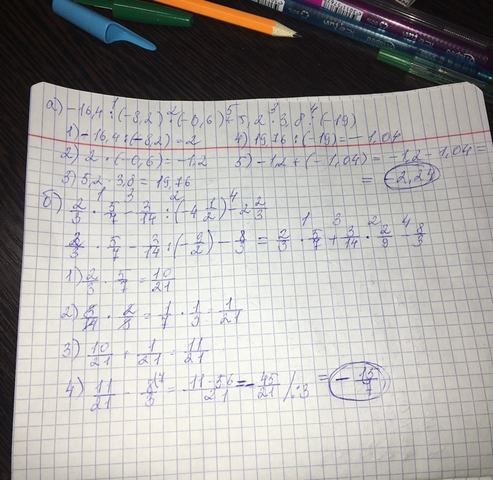 а) -16,4 : (-8,2) · (-0,6) - 5,2 · 3,8 : (-19)
1) -16,4 : (-8,2) = 2 4) 19,76 : (-19) = -1,04
2) 2 · (-0,6) = -1,2 5) -1,2 + (-1,04) = -1,2 - 1,04 =
3) 5,2 · 3,8 = 19,76 = -2,24
б) 2/3 · 5/7 - 3/14 : (-4 1/2) - 2 2/3
2/3 · 5/7 - 3/14 : (-9/2) - 8/3 = 2/3 · 5/7 + 3/14 · 2/9 - 8/3
1) 2/3 · 5/7 = 10/21
2) 3/14 · 2/9 = 1/7 · 1/3 = 1/21
3) 10/21 + 1/21 = 11/21
4) 11/21 - 8/3 (7 = 11-56/21 = -45/21 /:3 = -15/7